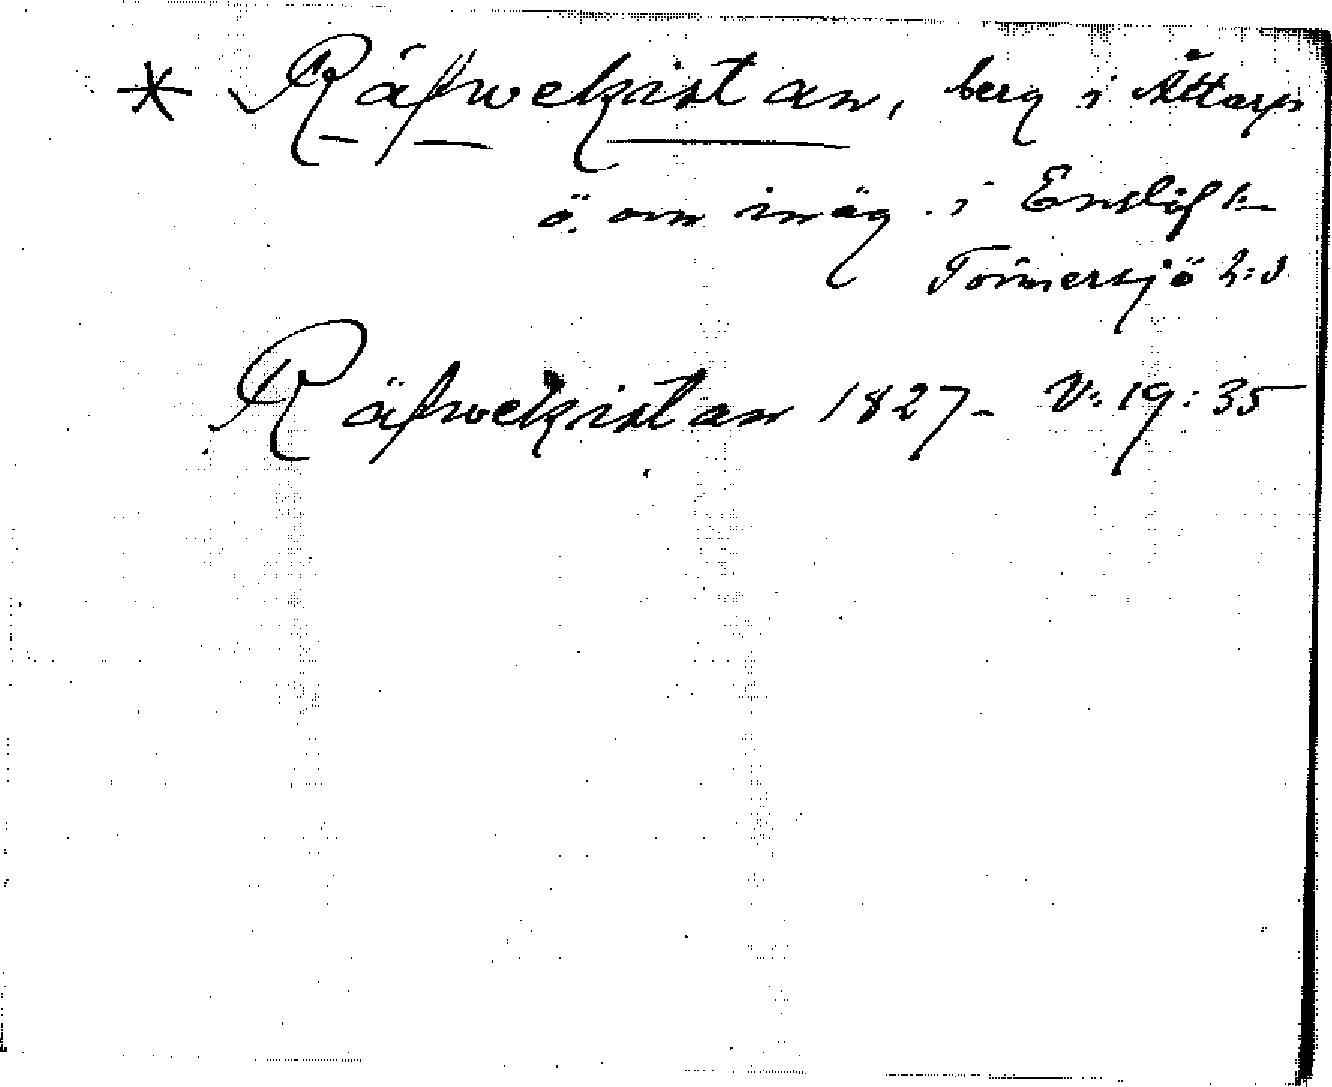 * Räfwekistan, berg i Åttarp
ö. om inäg. i Enslöf sn
Tönnersjö h:d
Räfwekistan 1827 - V: 19: 35